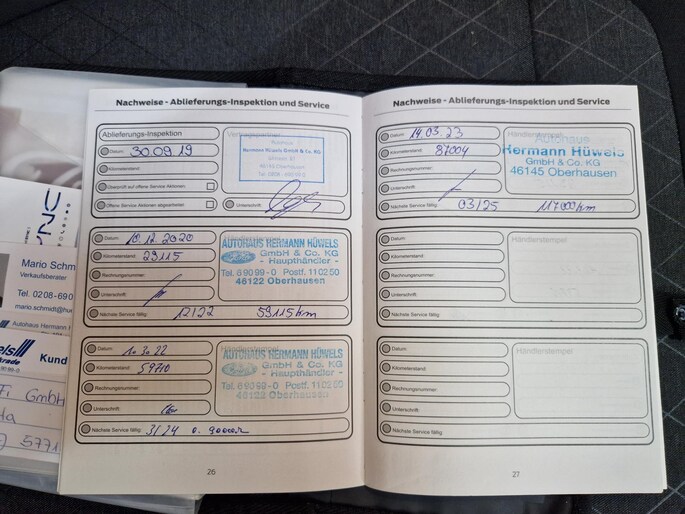 Nachweise - Ablieferungs-Inspektion und Service
Ablieferungs-Inspektion
Datum: 30.09.19
Kilometerstand:
Überprüft auf offene Service-Aktionen
Offene Service-Aktionen abgearbeitet
Vertragspartner
Autohaus
Hermann Hüwels GmbH & Co. KG
Oberhausen
Unterschrift
Datum: 10.12.2020
Kilometerstand: 29115
Rechnungsnummer:
Unterschrift:
Nächste Service fällig: 12/22 59115 km
AUTOHAUS HERMANN HÜWELS
GmbH & Co. KG
- Haupthändler -
Tel. 6 90 99 - 0 Postf. 11 02 50
46122 Oberhausen
Datum: 10.3.22
Kilometerstand: 59710
Rechnungsnummer:
Unterschrift:
Nächste Service fällig: 3/24 o.
AUTOHAUS HERMANN HÜWELS
GmbH & Co. KG
- Haupthändler -
Tel. 6 90 99 - 0 Postf. 11 02 50
46122 Oberhausen
26
Nachweise - Ablieferungs-Inspektion und Service
Datum: 14.03.23
Kilometerstand: 87004
Rechnungsnummer:
Unterschrift:
Nächste Service fällig: 03/25 117000 km
Händlerstempel
Autohaus
Hermann Hüwels
GmbH & Co. KG
46145 Oberhausen
Datum:
Kilometerstand:
Rechnungsnummer:
Unterschrift:
Nächste Service fällig:
Händlerstempel
Datum:
Kilometerstand:
Rechnungsnummer:
Unterschrift:
Nächste Service fällig:
Händlerstempel
27
Mario Schm
Verkaufsberater
Tel. 0208-690
mario.schmidt@hu
Autohaus Hermann
Kund
GmbH
5771